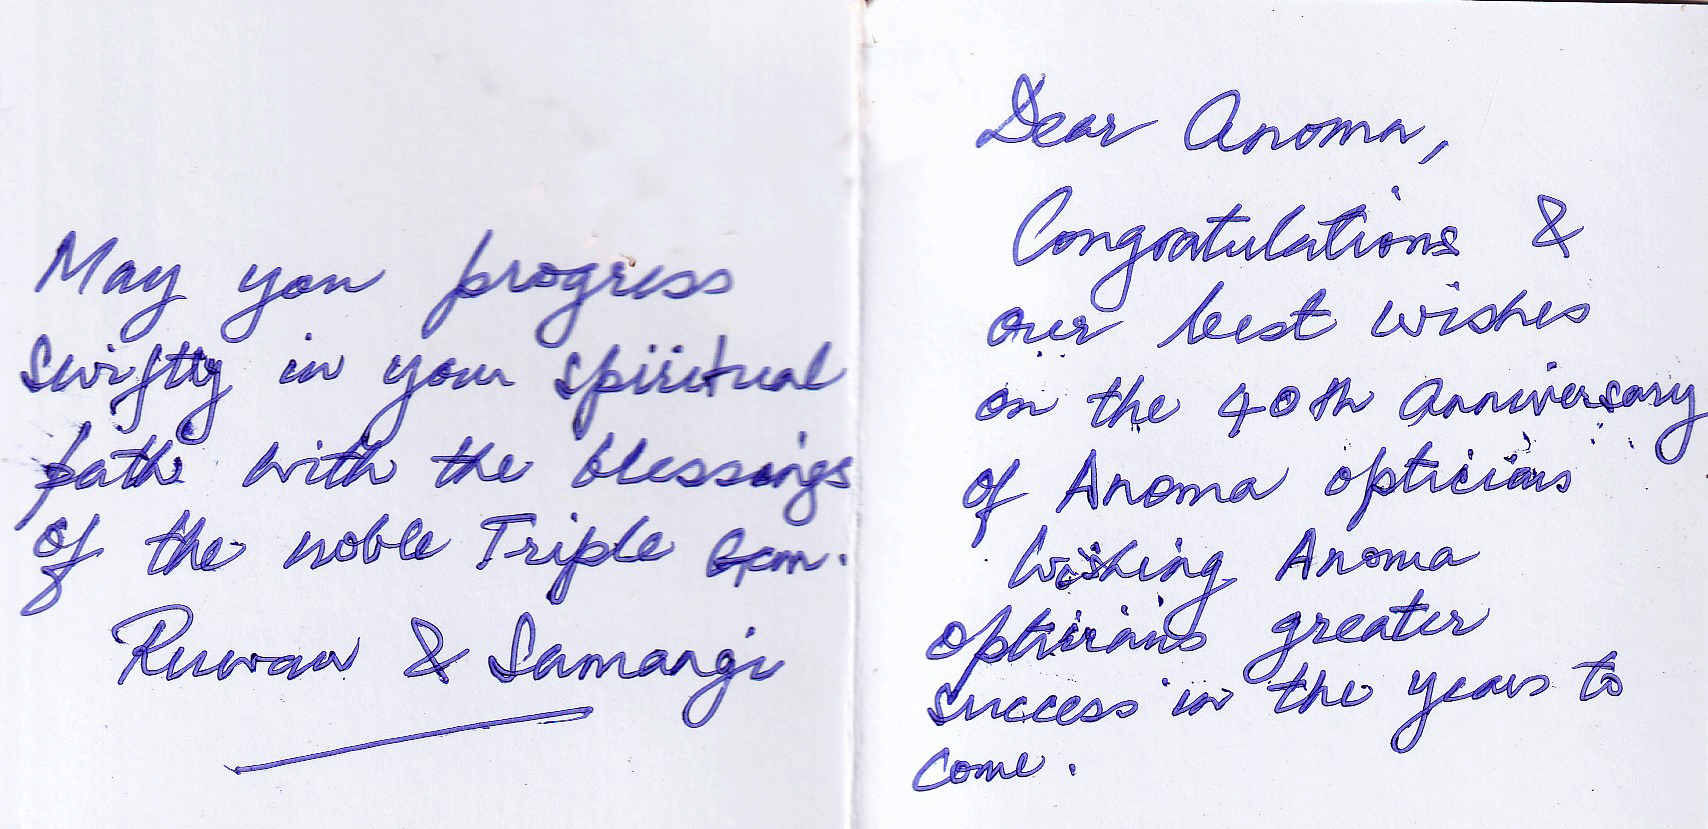 May you progress
swiftly in your spiritual
path with the blessings
of the noble Triple Gem.
Ruwan & Samangi
Dear Anoma,
Congratulations &
our best wishes
on the 40th anniversary
of Anoma opticians
Wishing Anoma
opticians greater
success in the years to
come.